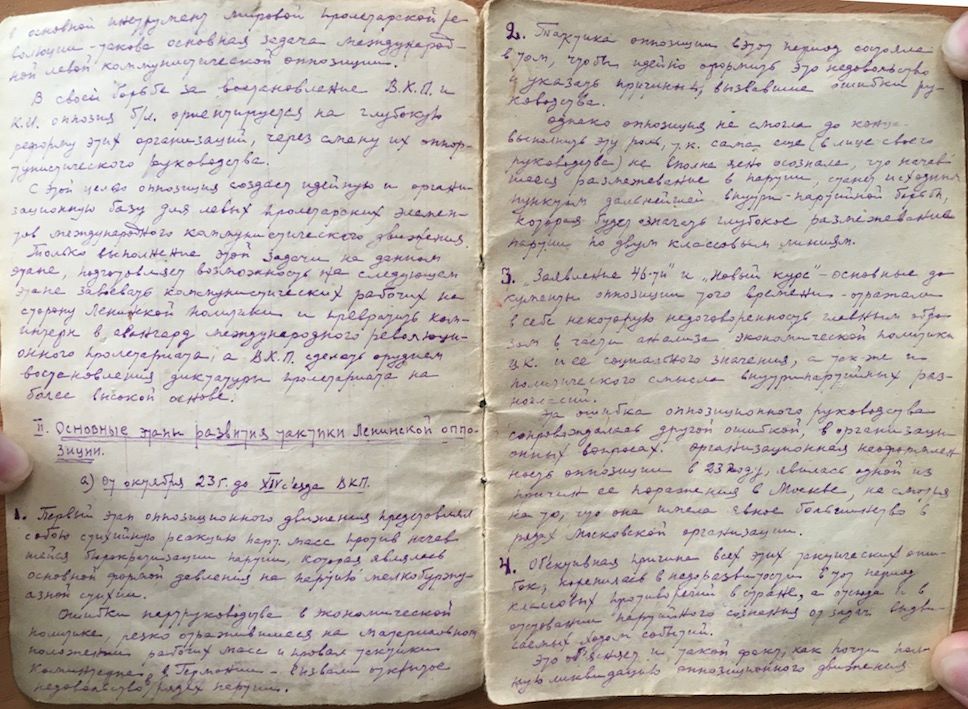 в основной инструмент мировой пролетарской ре-
волюции - такова основная задача международ-
ной левой коммунистической оппозиции.
В своей борьбе за востановление В.К.П. и
К.И. оппозия б/л. ориентируется на глубокую
реформу этих организаций, через смену их оппор-
тунистического руководства.
С этой целью оппозиция создает идейную и органи-
зационную базу для левых пролетарских элемен-
тов международного коммунистического движения.
Только выполнение этой задачи на данном
этапе, подготовляет возможность на следующем
этапе завоевать коммунистических рабочих на
сторону Ленинской политики и превратить ком-
интерн в авангард международного революци-
онного пролетариата, а В.К.П. сделать орудием
востановления диктатуры пролетариата на
более высокой основе.
II. Основные этапы развития тактики Ленинской оппо-
зиции.
а) От октября 23 г. до XIV с'езда ВКП.
1. Первый этап оппозиционного движения представлял
собою стихийную реакцию парт. масс против начав-
шейся бюрократизации партии, которая являлась
основной формой давления на партию мелкобуржу-
азной стихии.
Ошибки партруководства в экономической
политике, резко отразившиеся на материальном
положении рабочих масс и провал тактики
Коминтерна в Германии - вызвали открытое
недовольство в рядах партии.
2. Тактика оппозиции в этот период состояла
в том, чтобы идейно оформить это недовольство
и указать причины, вызвавшие ошибки ру-
ководства.
Однако оппозиция не смогла до конца
выполнить эту роль, т.к. сама еще (в лице своего
руководства) не вполне ясно осознала, что начав-
шееся размежевание в партии, станет исходным
пунктом дальнейшей внутри-партийной борьбы,
которая будет означать глубокое размежевание
партии по двум классовым линиям.
3. "Заявление 46-ти" и "Новый курс" - основные до-
кументы оппозиции того времени - отражали
в себе некоторую недоговоренность главным обра-
зом в части анализа экономической политики
ц.к. и ее социального значения, а так-же и
политического смысла внутрипартийных раз-
ногласий.
Эта ошибка оппозиционного руководства
сопровождалась другой ошибкой, в организаци-
онных вопросах. Организационная неоформлен-
ность оппозиции в 23 году, явилась одной из
причин ее поражения в Москве, не смотря
на то, что она имела явное большинство в
рядах Московской организации.
4. Об'ективная причина всех этих тактических оши-
бок, коренилась в недоразвитости в тот период
классовых противоречий в стране, а отсюда и в
отставании партийного сознания от задач выдви-
гаемых ходом событий.
Это об'ясняет и такой факт, как почти пол-
ную ликвидацию оппозиционного движения